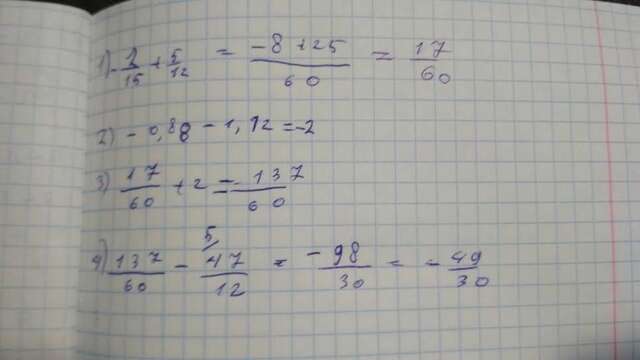 1) -2/15 + 5/12 = (-8+25)/60 = 17/60
2) -0,88 - 1,12 = -2
3) 17/60 + 2 = -137/60
4) 137/60 - 47/12 ⁵⁄ = -98/30 = -49/30